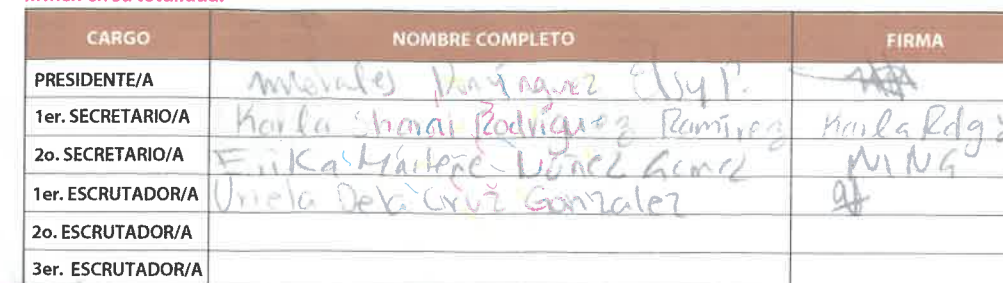 CARGO NOMBRE COMPLETO FIRMA
PRESIDENTE/A Morales
1er. SECRETARIO/A Karla Rodríguez Ramírez Karla Rdgz
2o. SECRETARIO/A Erika Marlene Núñez Gómez NING
1er. ESCRUTADOR/A Uriela De la Cruz Gonzalez
2o. ESCRUTADOR/A
3er. ESCRUTADOR/A